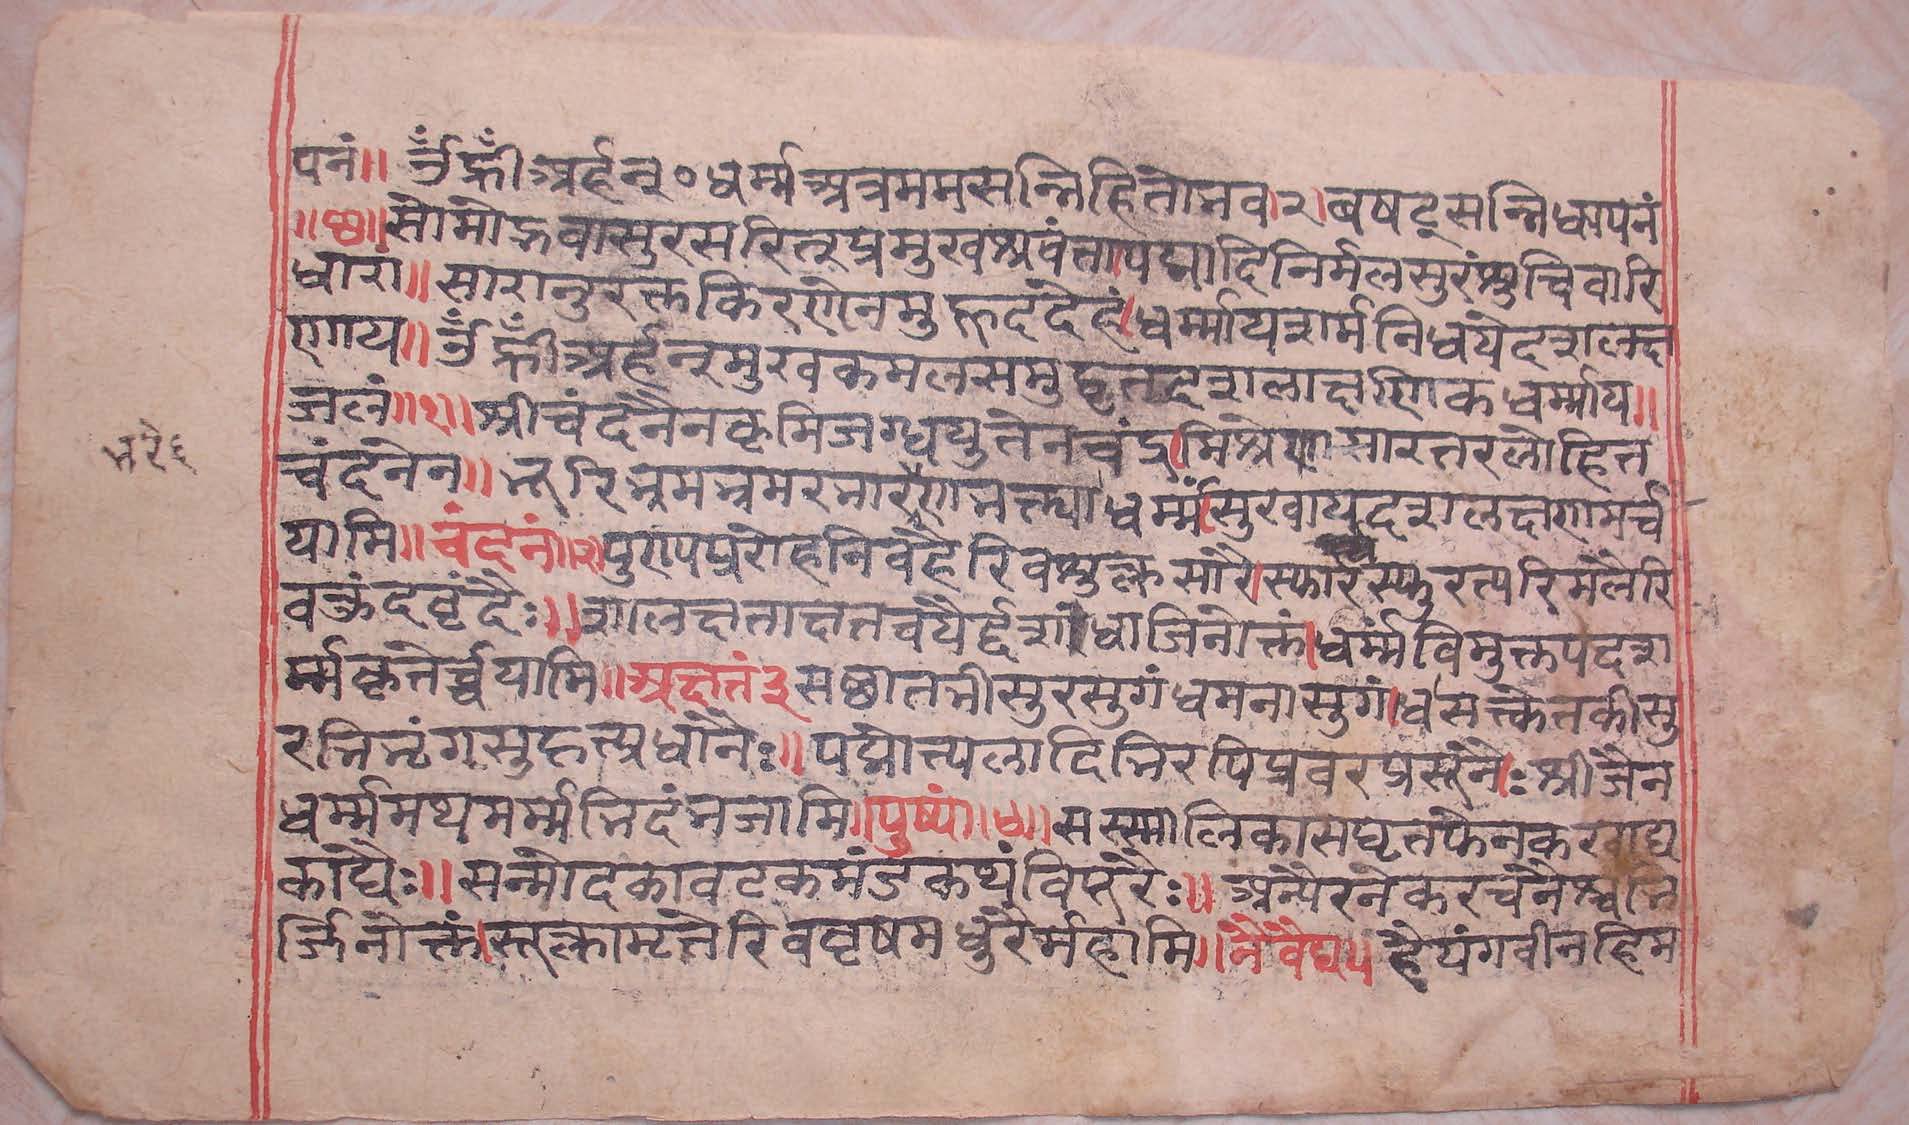 पनं॥ ॐ ह्रीं अर्हन्० धर्म्म अत्र मम सन्निहितो भव २। वषट् सन्निधापनं
॥छ॥ सोमोद्भवासुरसरित्प्रमुख श्रवंता। पद्मादिनिर्मलसुरं शुचिवारि
धारा॥ सारानुरक्तकिरणेन मु देहं। धर्म्माय शर्मनिधये दशलक्ष
णाय॥ ॐ ह्रीं अर्हन्मुखकमलसमुद्भूत दशलाक्षणिक धर्म्माय॥
जलं॥१॥ श्रीचंदनेन कृमिजग्धयुतेन चंद्र। मिश्रेण सारतरलोहित
चंदनेन॥ भूरिभ्रमद्भ्रमरभारुणा भक्त्या धर्म्मं। सुखाय दशलक्षणमर्च
यामि॥ चंदनं॥२॥ पुण्यप्ररोहनिवहैरिव शुक्लसारै। स्फारस्फुरत्परिमलैरि
व कुंदवृंदैः॥ शालक्षताक्षतचयैर्द्दशधा जिनोक्तं। धर्म्मं विमुक्तपदश
र्म्मकृतेर्च्चयामि॥ अक्षतं ३ सज्जातभीसुरसुगंधमनासुगं। धसत्केतकीसु
रभिभृंगसुहृत्प्रधानैः॥ पद्मोत्पलादिभिरपि प्रवरप्रसूनैः। श्रीजैन
धर्म्ममथमर्म्मभिदं नजामि॥ पुष्पं॥४॥ सस्मालिकासघृतफेनकखाद्य
काद्यैः॥ सन्मोदकावटकमंडकथंविस्तरैः॥ अन्यैरनेकरचनैश्चनि
र्जिनोक्तं। सूक्तामृतैरिव वृषमधुरैर्महामि॥ नैवेद्य ५ हैयंगवीनहिम
भरे६